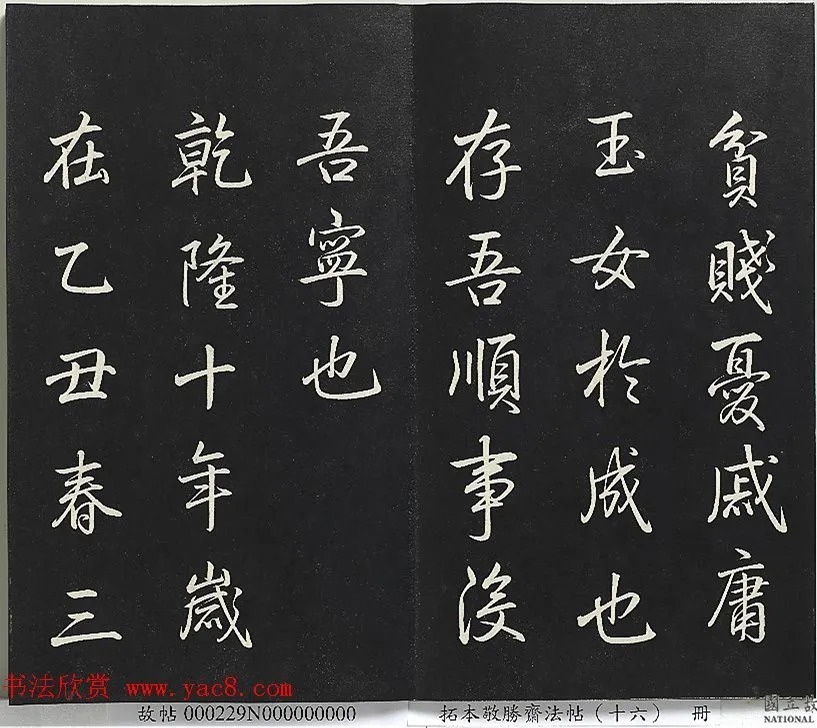 貧賤憂戚庸
玉女於成也
存吾順事沒
吾寧也
乾隆十年歲
在乙丑春三
书法欣赏 www.yac8.com
故帖 000229N000000000
拓本敬勝齋法帖（十六） 冊
國立故
NATIONAL